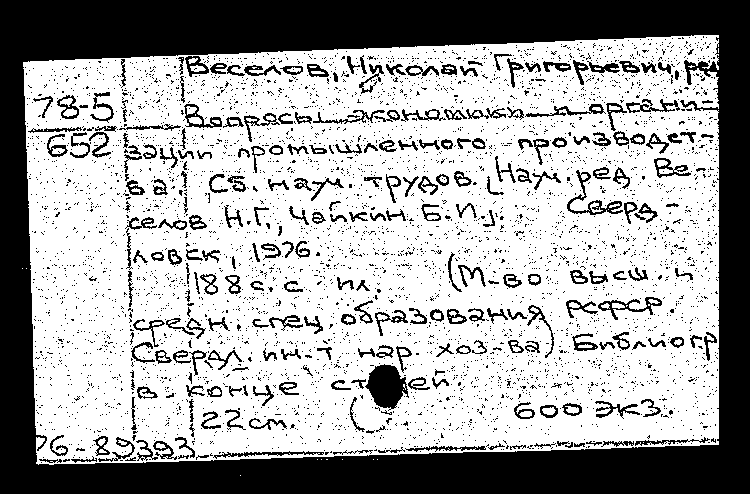 Веселов, Николай Григорьевич, ред
78-5
Вопросы экономики и органи-
652
зации промышленного производст-
ва. Сб. науч. трудов. [Науч. ред. Ве-
селов Н.Г., Чайкин Б.И.]. Сверд-
ловск, 1976.
188 с. с ил. (М-во высш. и
средн. спец. образования РСФСР.
Свердл. ин-т нар. хоз-ва). Библиогр
в конце статей.
22 см. 600 экз.
76-89393